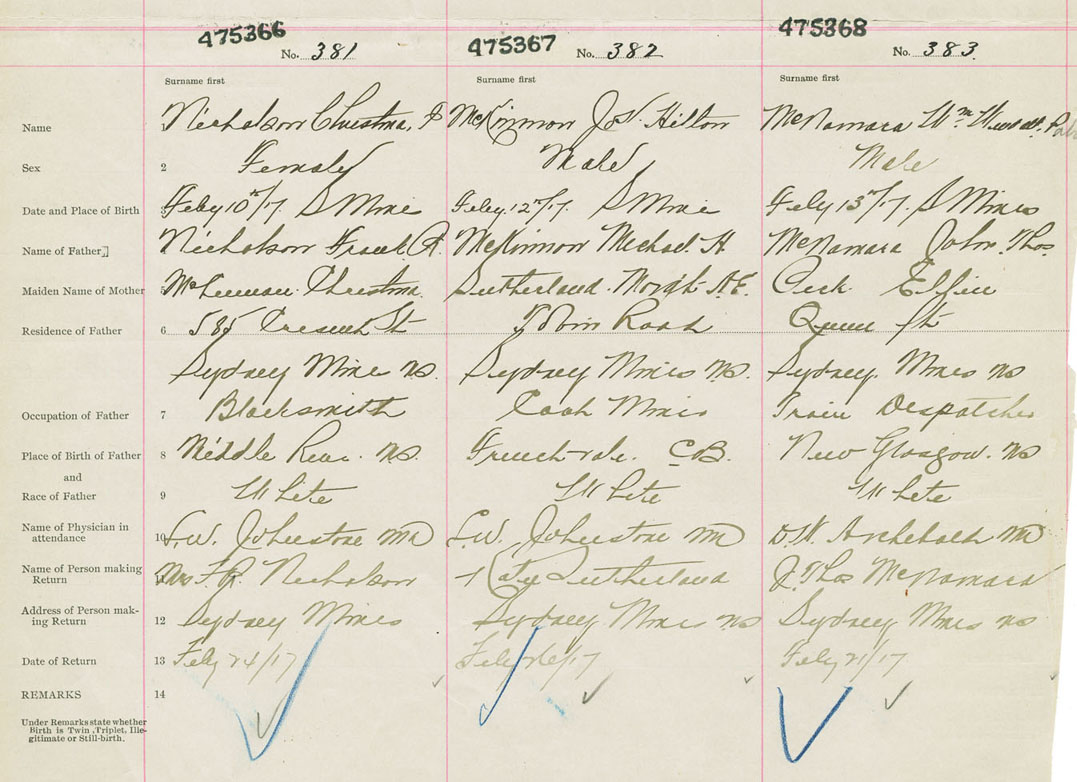 475366 475367 475368
No. 381 No. 382 No. 383.
Surname first Surname first Surname first
Name 1 Nicholson Christina, McKinnon Jos. Hilton McNamara Wm
Sex 2 Female Male Male
Date and Place of Birth 3 Feby 10th/17. S Mine Feby 12th/17. S Mine Feby 13th/17. S Mines
Name of Father 4 Nicholson Frank R. McKinnon Michael H McNamara John. Thos
Maiden Name of Mother 5 Christina. Sutherland. Effie
Residence of Father 6 585 Crescent St Road Queen St
Sydney Mine NS. Sydney Mines NS. Sydney. Mines NS
Occupation of Father 7 Blacksmith Mines Train Despatcher
Place of Birth of Father 8 Middle River. NS. French-vale. CB. New Glasgow. NS
and
Race of Father 9 White White White
Name of Physician in
attendance 10 L.W. Johnstone MD L.W. Johnstone MD MD
Name of Person making
Return 11 Mrs F. R. Nicholson Katy Sutherland J. Thos McNamara
Address of Person mak-
ing Return 12 Sydney Mines Sydney Mines NS Sydney Mines NS
Date of Return 13 Feby 24/17 Feby 26/17 Feby 21/17
REMARKS 14
Under Remarks state whether
Birth is Twin, Triplet, Ille-
gitimate or Still-birth.